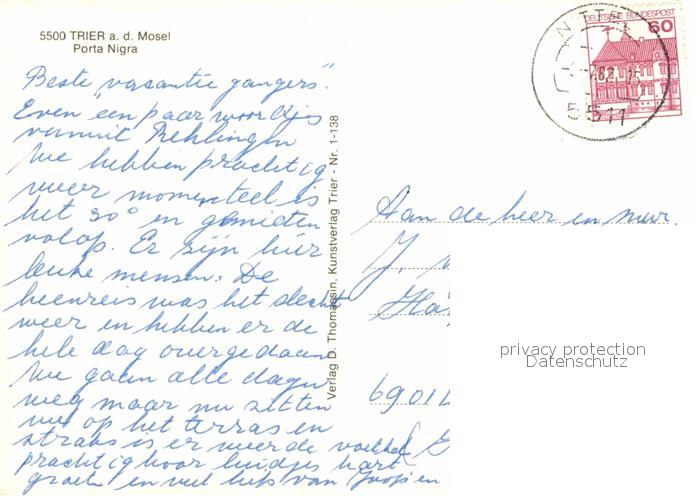 5500 TRIER a. d. Mosel
Porta Nigra
Beste vacantie gangers".
Even een paar woordjes
vanuit Rehlingen
We hebben prachtig
weer momenteel is
het 30° en genieten
volop. Er zijn hier
leuke mensen. De
heenreis was het slecht
weer en hebben er de
hele dag overgedaan
We gaan alle dagen
weg maar nu zitten
we op het terras en
straks is er weer de
prachtig hoor luidjes hart
groeten en veel liefs van Joop en
Verlag D. Thomassin, Kunstverlag Trier - Nr. 1-138
DEUTSCHE BUNDESPOST
60
5511
Aan de heer en mevr.
J.
6901
privacy protection
Datenschutz